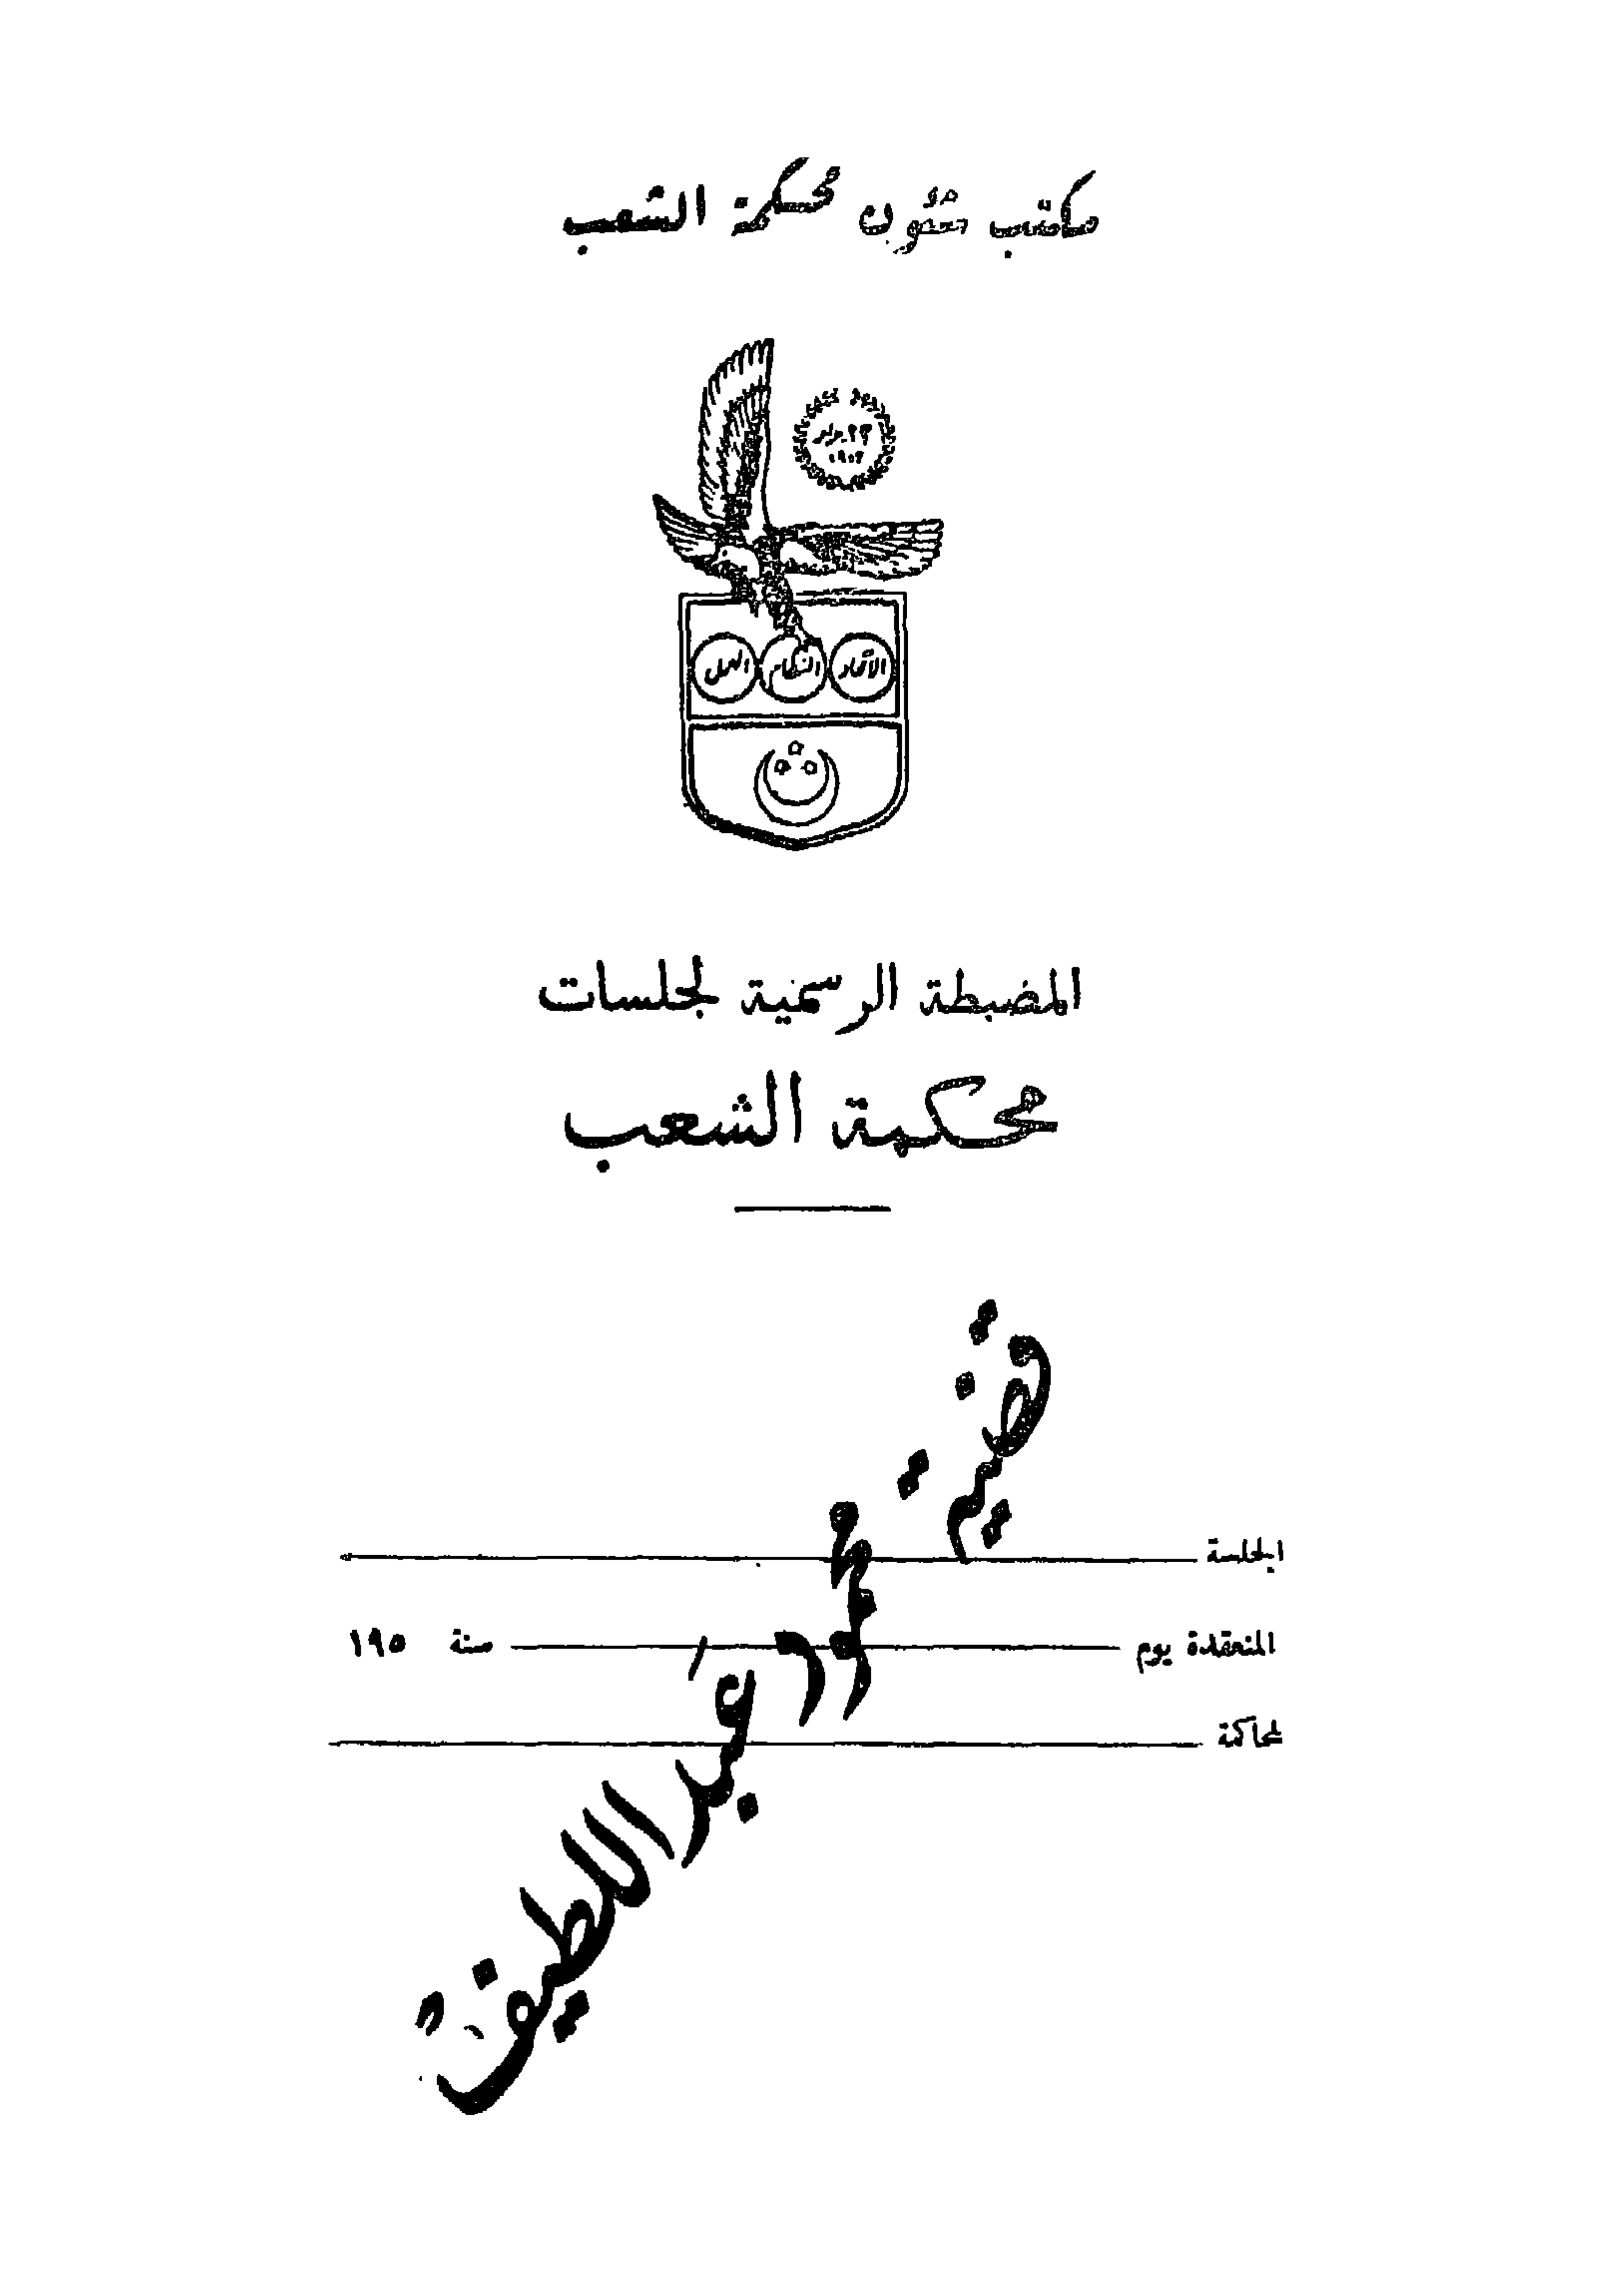 مكتب شئون محكمة الشعب
٢٣ يوليو
١٩٥٢
الاتحاد النظام العمل
المضبطة الرسمية لجلسات
محكمة الشعب
قضية محمود عبد اللطيف
الجلسة
المنعقدة يوم / سنة ١٩٥
لمحاكمة